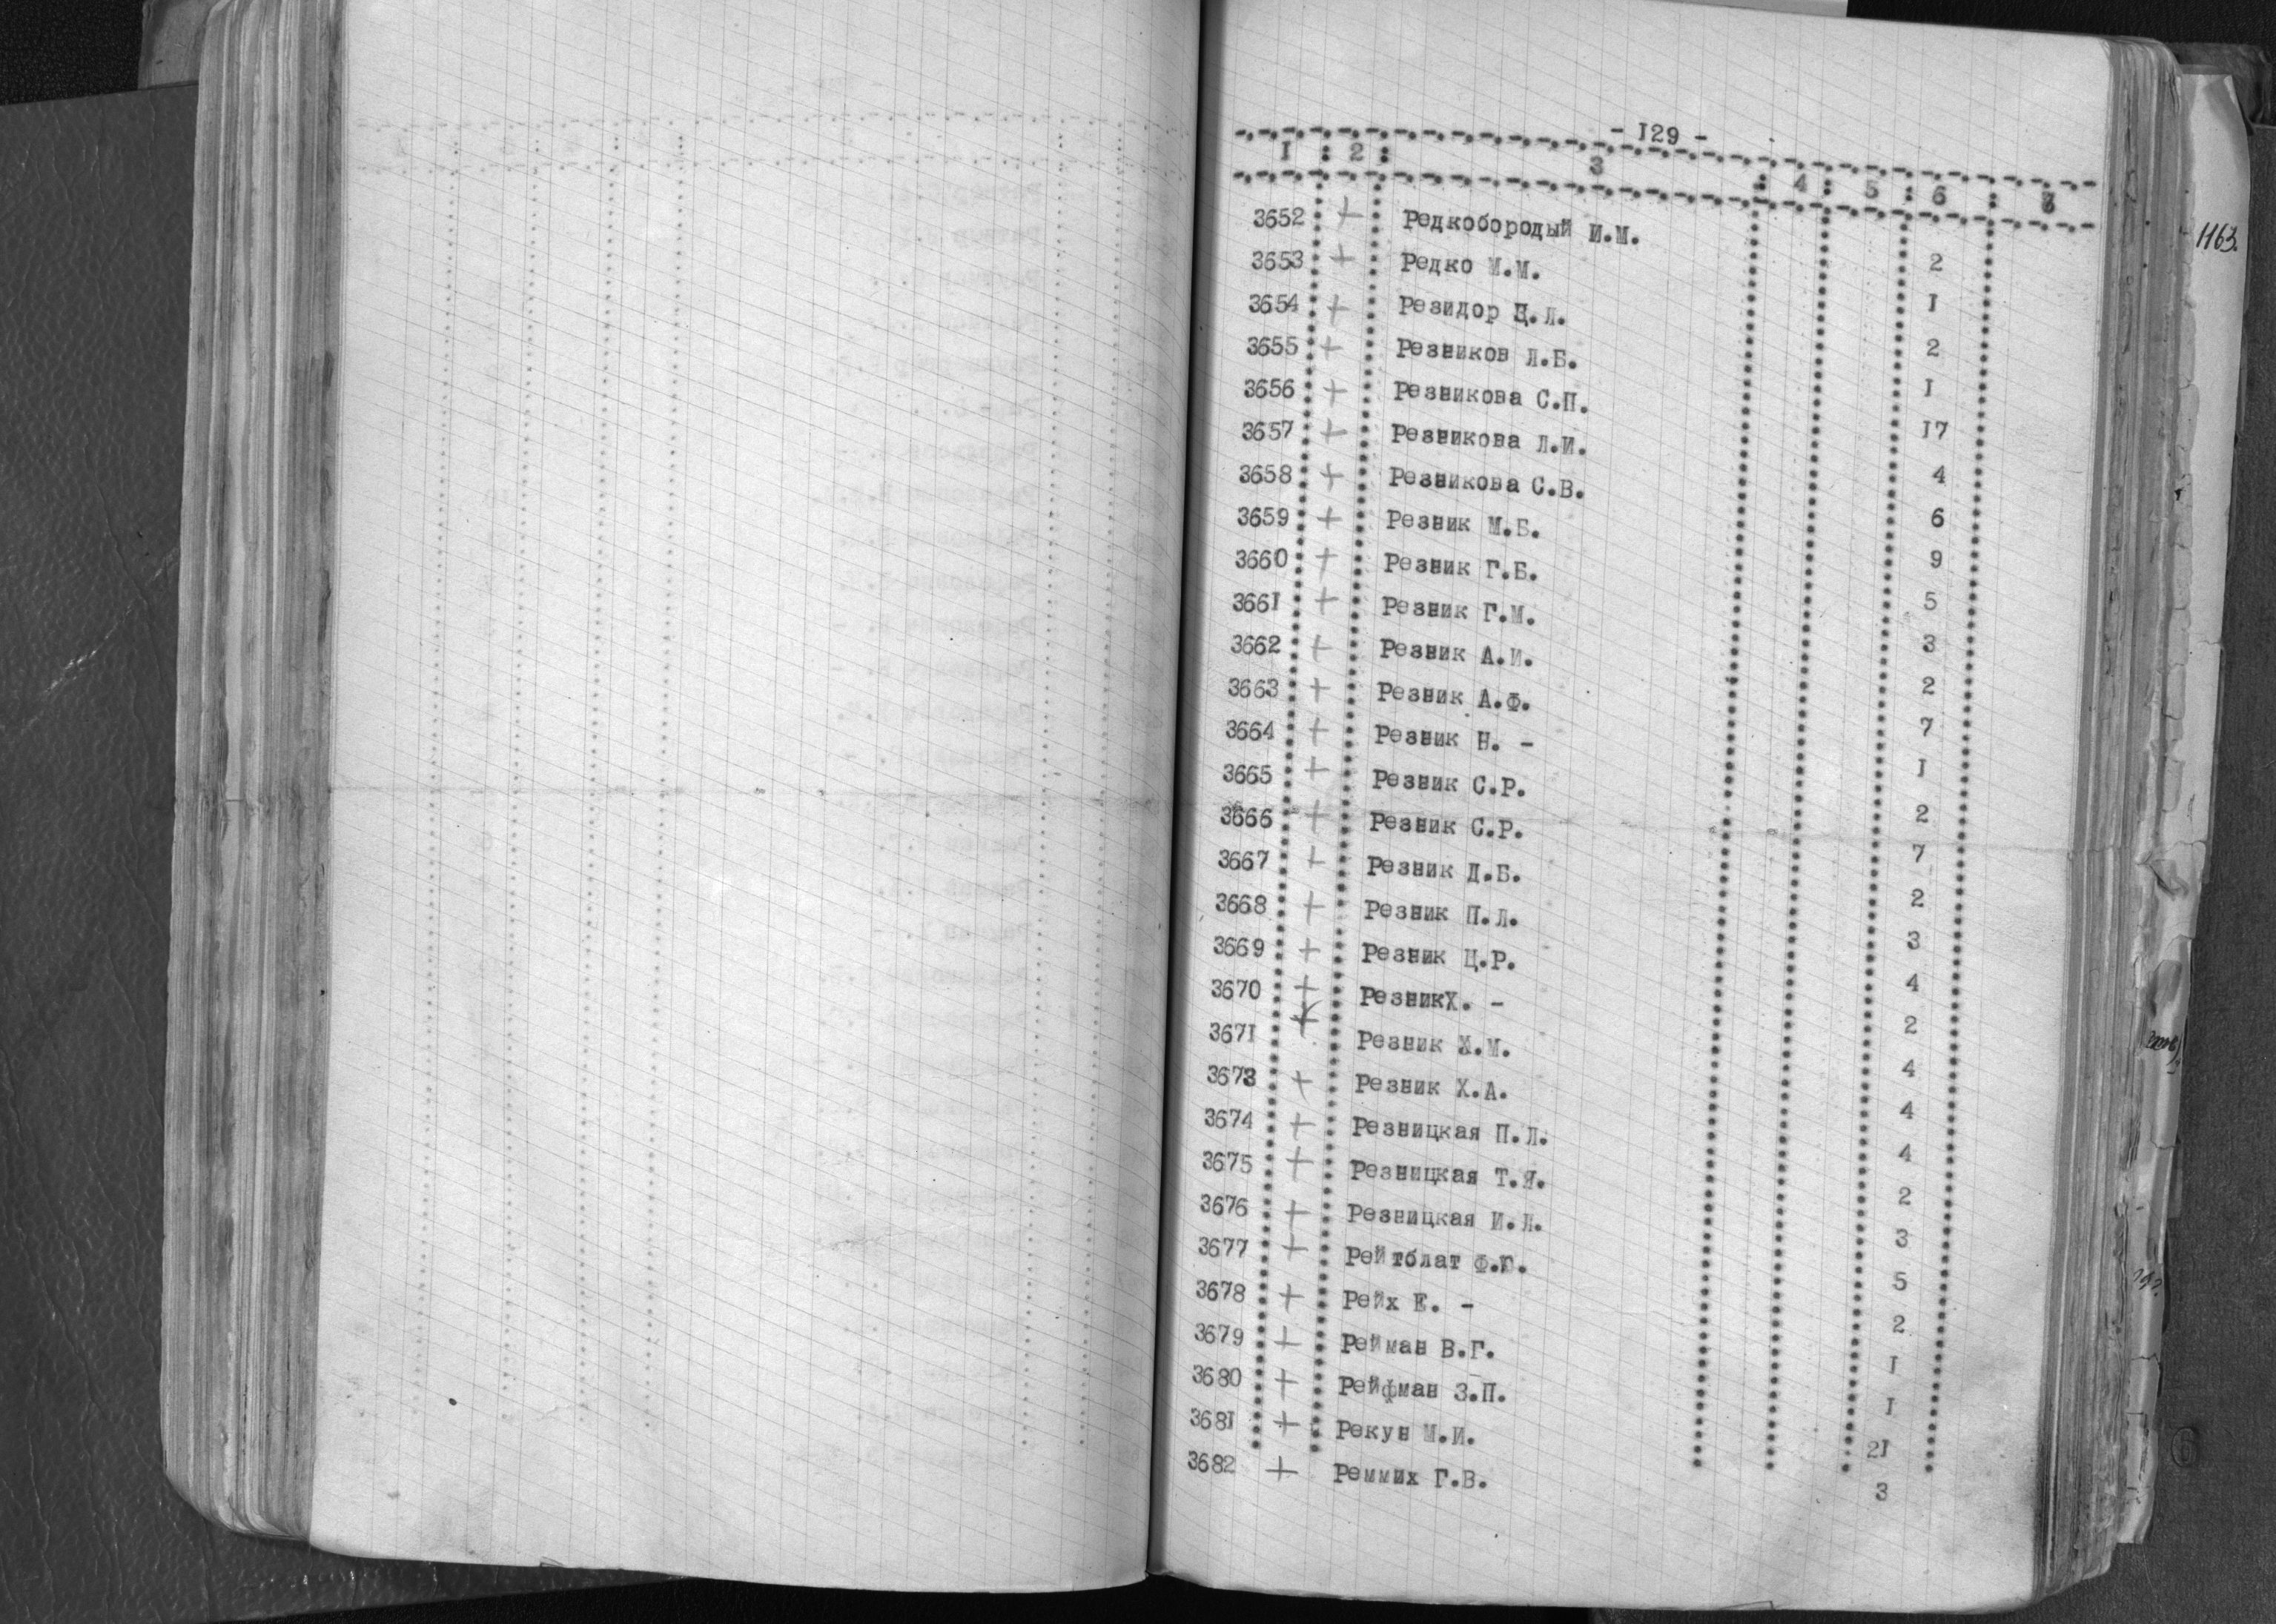 - I29 -
I : 2 : 3 : 4 : 5 : 6 : 7
3652 + Редкобородый И.М. 2
3653 + Редко М.М. I
3654 + Резидор Ц.Л. 2
3655 + Резников Л.Б. I
3656 + Резникова С.П. I7
3657 + Резникова Л.И. 4
3658 + Резникова С.В. 6
3659 + Резник М.Б. 9
3660 + Резник Г.Б. 5
366I + Резник Г.М. 3
3662 + Резник А.И. 2
3663 + Резник А.Ф. 7
3664 + Резник Н. - I
3665 + Резник С.Р. 2
3666 + Резник С.Р. 7
3667 + Резник Д.Б. 2
3668 + Резник П.Л. 3
3669 + Резник Ц.Р. 4
3670 + РезникХ. - 2
367I + Резник М. 4
3673 + Резник Х.А. 4
3674 + Резницкая П.Л. 4
3675 + Резницкая Т.Я. 2
3676 + Резницкая И.Л. 3
3677 + Рейтблат Ф.Ю. 5
3678 + Рейх Е. - 2
3679 + Рейман В.Г. I
3680 + Рейфман З.П. I
368I + Рекун М.И. 2I
3682 + Реммих Г.В. 3
1163.